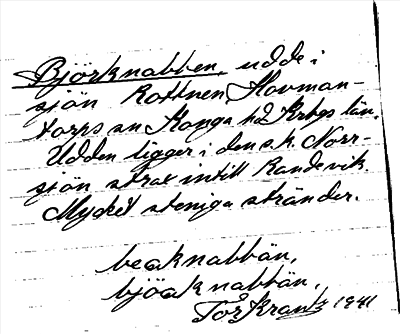 Björknabben, udde i
sjön Rottnen, Hovman-
torps sn Konga hd Krbgs län.
Udden ligger i den s.k. Norr-
sjön strax intill Randevik.
Mycket steniga stränder.
beaknabbän,
bjöaknabbän,
Tor Krantz 1941